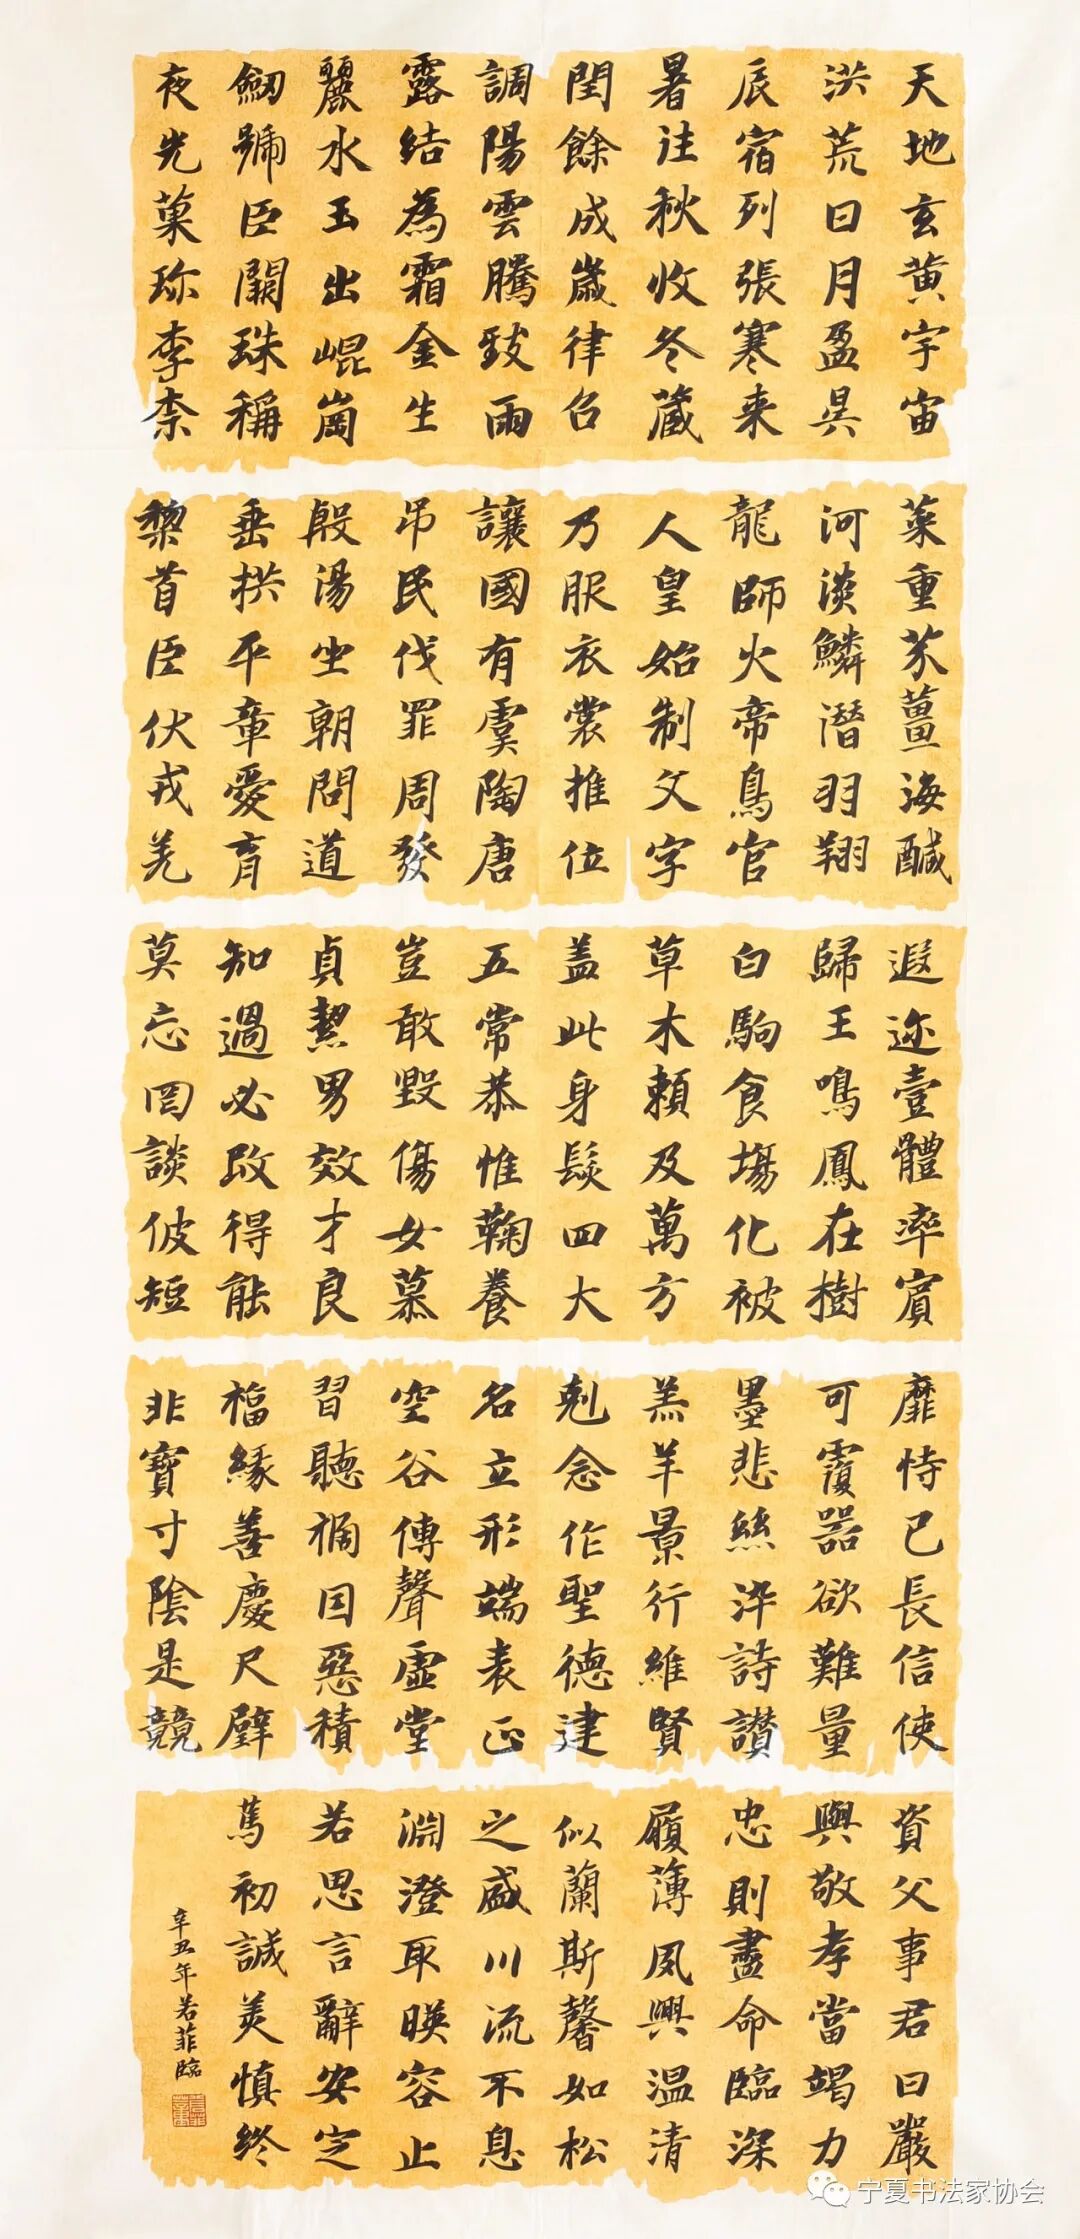 天地玄黄宇宙
洪荒日月盈昃
辰宿列張寒来
暑往秋收冬蔵
閏餘成歲律召
調陽雲騰致雨
露結為霜金生
麗水玉出崐崗
劒號巨闕珠稱
夜光菓珎李柰
菜重芥薑海醎
河淡鱗潛羽翔
龍師火帝鳥官
人皇始制文字
乃服衣裳推位
讓國有虞陶唐
吊民伐罪周發
殷湯坐朝問道
垂拱平章愛育
黎首臣伏戎羌
遐迩壹體率賓
歸王鳴鳳在樹
白駒食場化被
草木賴及萬方
盖此身髮四大
五常恭惟鞠養
豈敢毀傷女慕
貞絜男效才良
知過必改得能
莫忘罔談彼短
靡恃己長信使
可覆器欲難量
墨悲絲染詩讃
羔羊景行維賢
剋念作聖德建
名立形端表正
空谷傳聲虛堂
習聽禍因惡積
福緣善慶尺璧
非寶寸陰是競
資父事君曰嚴
與敬孝當竭力
忠則盡命臨深
履薄夙興温清
似蘭斯馨如松
之盛川流不息
淵澄取暎容止
若思言辭安定
篤初誠美慎終
辛丑年若菲臨
宁夏书法家协会